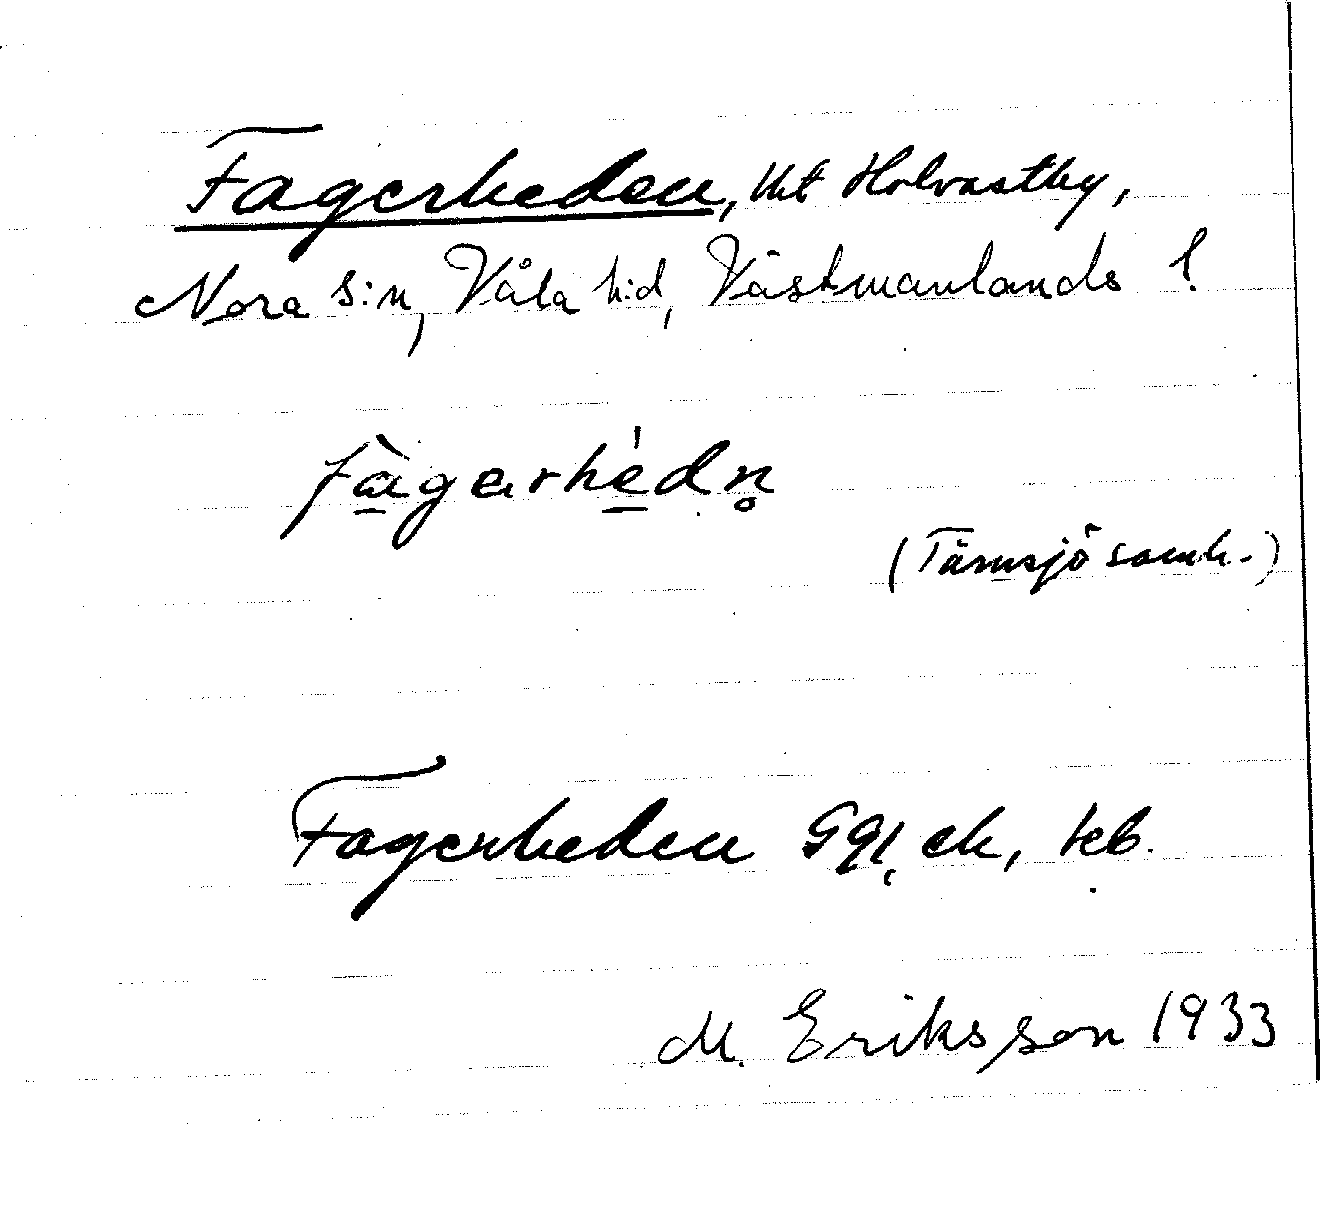 Fagerheden, Ut Holvastby,
Nora s:n, Våla h:d, Västmanlands l.
fàgerhédn̥
(Tärnsjö samh.)
Fagerheden Gql, ek, keb.
M. Eriksson 1933